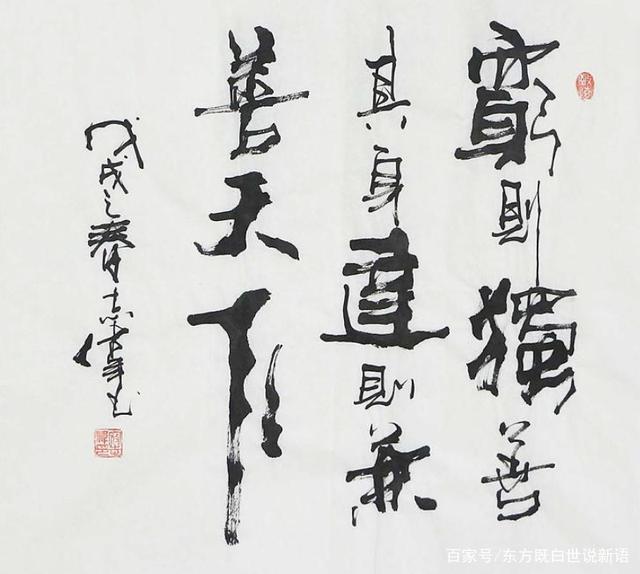 窮則獨善
其身達則兼
善天下
戊戌之春志偉书
百家号/东方既白世说新语